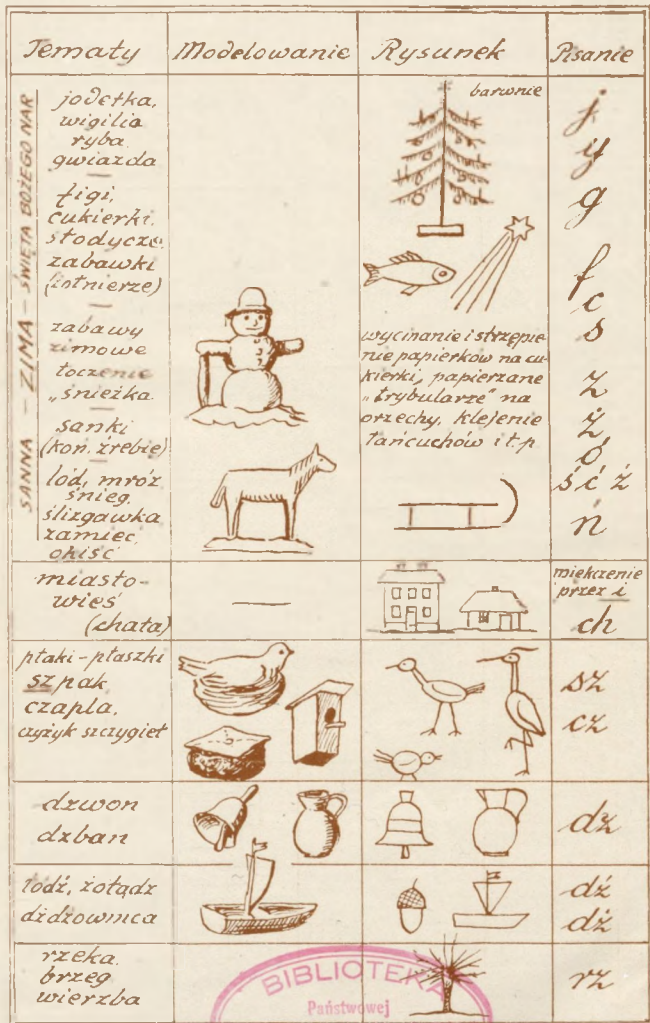 Tematy
Modelowanie
Rysunek
Pisanie
SANNA – ZIMA – ŚWIĘTA BOŻEGO NAR
jodełka,
wigilia
ryba
gwiazda
figi,
cukierki.
słodycze.
zabawki
(żołnierze)
zabawy
zimowe
toczenie
„śnieżka
sanki
(koń. źrebię)
lód, mróz
śnieg,
ślizgawka
zamieć,
okiść
barwnie
wycinanie i strzępie
nie papierków na cu
kierki, papierzane
„trybularze" na
orzechy, klejenie
łańcuchów i t.p
j
y
g
f
c
s
z
ż
ó
ść ź
ń
miasto–
wieś
(chata)
miękczenie
przez i
ch
ptaki – ptaszki
szpak
czapla,
czyżyk szczygieł
sz
cz
dzwon
dzban
dz
łódź, żołądź
dżdżownica
dź
dż
rzeka
brzeg
wierzba
rz
BIBLIOTEKA
Państwowej